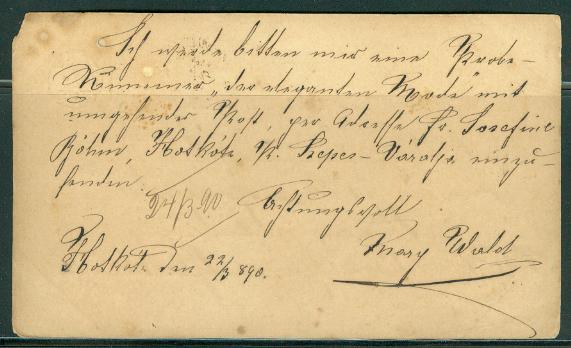 Ich werde bitten mir eine Probe-
Nummer "der eleganten Mode" mit
umgehender Post, per Adresse Fr. Josefine
Böhm, Hotkótz, P. Szepes-Váralja einzu-
senden.
24/3 90 Achtungsvoll
Hotkótz den 22/3 890. Mary Wald